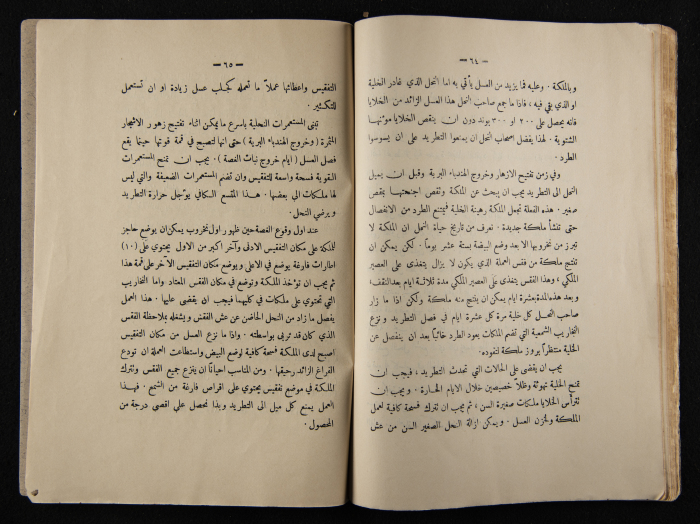 — ٦٤ —
وبالملكة . وعليه فما يزيد من العسل يأتي به اما النحل الذي غادر الخلية
او الذي بقي فيه ، فاذا ما جمع صاحب النحل هذا العسل الزائد من الخلايا
فانه يحصل على ٢٠٠ او ٣٠٠ بوند دون ان ينقص الخلايا مؤنتها
الشتوية . لهذا يفضل اصحاب النحل ان يمنعوا التطريد على ان يسوسوا
الطرد .
وفي زمن تفتيح الازهار وخروج الهندباء البرية وقبل ان يميل
النحل الى التطريد يجب ان يبحث عن الملكة وتقص اجنحتها بمقص
صغير . هذه الفعلة تجعل الملكة رهينة الخلية فيمتنع الطرد من الانفصال
حتى تنشأ ملكة جديدة . نعرف من تاريخ حياة النحل ان الملكة لا
تبرز من نخروبها الا بعد وضع البيضة بستة عشر يوماً . لكن يمكن ان
تنتج ملكة من فقس العملة الذي يكون لا يزال يتغذى على العصير
الملكي ، وهذا الفقس يتغذى على العصير الملكي مدة ثلاثة ايام بعد النقف ،
وبعد هذه المدة بعشرة ايام يمكن ان ينتج منه ملكة ولكن اذا ما زار
صاحب النحل كل خلية مرة كل عشرة ايام في فصل التطريد ونزع
التخاريب الشمعية التي تضم الملكات يعود الطرد خائباً بعد ان ينفصل عن
الخلية منتظراً بروز ملكة لتقوده .
يجب ان يقضى على الحالات التي تحدث التطريد ، فيجب ان
تمنح الخلية تهوئة وظلاً خصيصين خلال الايام الحارة . ويجب ان
تترأس الخلايا ملكات صغيرة السن ، ثم يجب ان تترك فسحة كافية لعمل
الملكة وخزن العسل . ويمكن ازالة النحل الصغير السن من عش
— ٦٥ —
التفقيس واعطائها عملاً ما تعمله كجلب عسل زيادة او ان تستعمل
للتكثير .
تبنى المستعمرات النحلية باسرع ما يمكن اثناء تفتيح زهور الاشجار
المثمرة ( وخروج الهندباء البرية ) حتى انها تصبح في قمة قوتها حينما يقع
فصل العسل ( ايام خروج نبات الفصة ) . يجب ان تمنح المستعمرات
القوية فسحة واسعة للتفقيس وان تضم المستعمرات الضعيفة والتي ليس
لها ملكات الى بعضها . هذا المتسع الكافي يؤجل حرارة التطريد
ويرضي النحل .
عند اول وقوع الفصة حين ظهور اول نخروب يمكن ان يوضع حاجز
للملكة على مكان التفقيس الادنى وآخر اكبر من الاول يحتوي على (١٠)
اطارات فارغة يوضع في الاعلى ويوضع مكان التفقيس الآخر على قمة هذا
ثم يجب ان تؤخذ الملكة وتوضع في مكان الفقس المعتاد واما التخاريب
التي تحتوي على ملكات في كليهما فيجب ان يقضى عليها . هذا العمل
يفصل ما زاد من النحل الحاضن عن عش الفقس ويشغله بملاحظة الفقس
الذي كان قد تربى بواسطته . واذا ما نزع العسل من مكان التفقيس
اصبح لدى الملكة فسحة كافية لوضع البيض واستطاعت العملة ان تودع
الفراغ الزائد رحيقها . ومن المناسب احياناً ان ينزع جميع الفقس وتترك
الملكة في موضع تفقيس يحتوي على اقراص فارغة من الشمع . فهذا
العمل يمنع كل ميل الى التطريد وبذا نحصل على اقصى درجة من
المحصول .